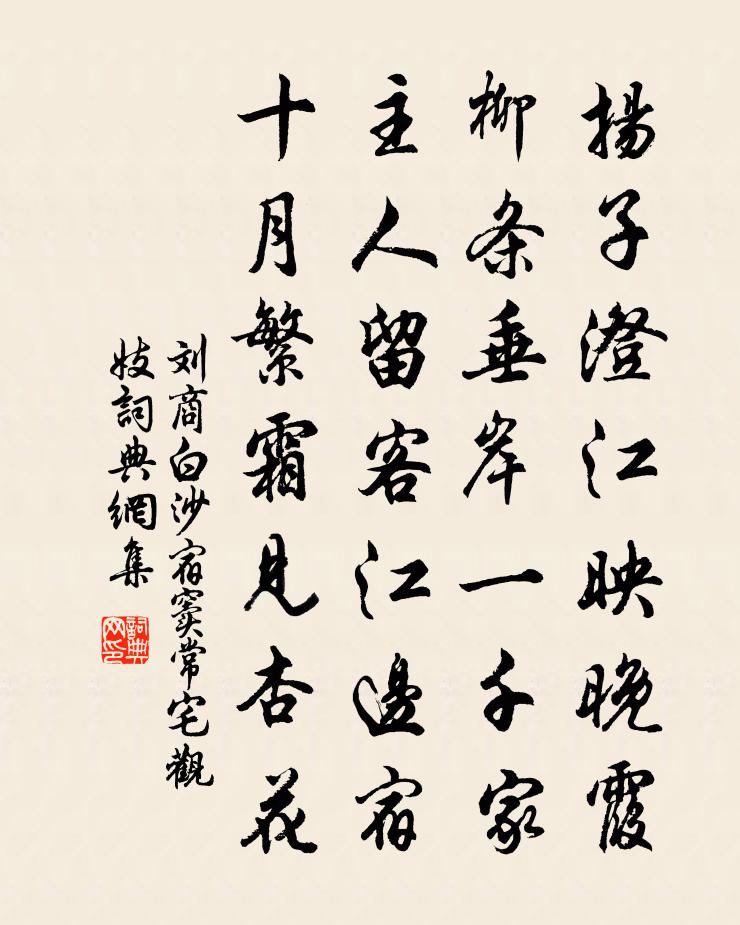 揚子澄江映晚霞
柳条垂岸一千家
主人留客江邊宿
十月繁霜見杏花
刘商白沙宿窦常宅觀
妓詞典網集
詞典网印